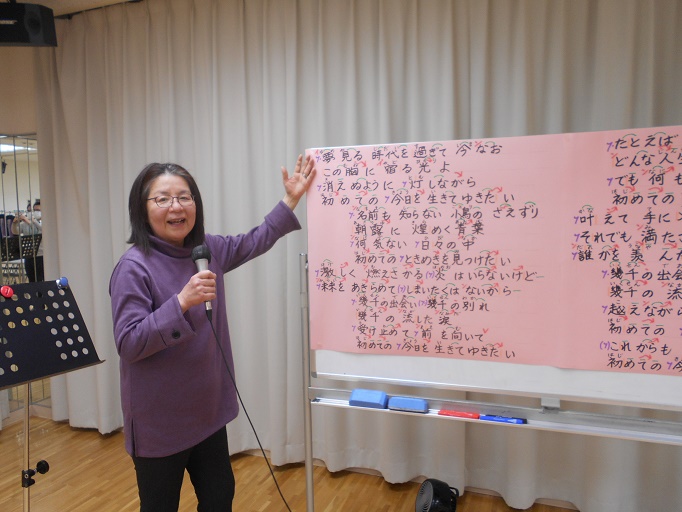 夢見る 時代を過ぎて 今なお
この胸に 宿る光よ
消えぬように 灯しながら
初めての 今日を生きてゆきたい
名前も 知らない 小鳥の さえずり
朝露に 煌めく青葉
何気ない 日々の中
初めての ときめきを見つけたい
激しく 燃えさかる 炎はいらないけど
未来を あきらめて しまいたくはないから
幾千の出会い 幾千の別れ
幾千の 流した涙
受け止めて 前を向いて
初めての 今日を生きてゆきたい
たとえば
どんな人生
でも 何も
初めての
叶えて 手に
それでも 満た
誰かを 羨んだ
幾千の出会
幾千の 流
越えながら
初めての
これからも
初めての 今